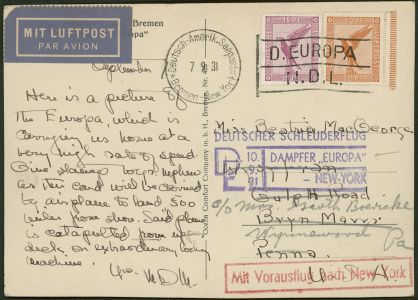 MIT LUFTPOST
PAR AVION
Bremen
Europa"
Deutsch-Amerik. Seepost
Bremen - New York
7 9 31
15 Pf
D. EUROPA
N. D. L.
September
Here is a picture of
the Europa, which is
carrying us home at a
very high rate of speed.
as this card will be carried
by airplane to land 500
miles from shore. Said plane
is catapulted from upper
deck on extraordinary
machine.
Ocean Comfort Company m. b. H., Bremen.
Miss Beatrice MacGeorge
DEUTSCHER SCHLEUDERFLUG
DAMPFER „EUROPA"
NEW-YORK
10
9
Road
c/o
Bryn Mawr
Wynnewood
Pa
Penna.
U. S. A.
Mit Vorausflug nach New York